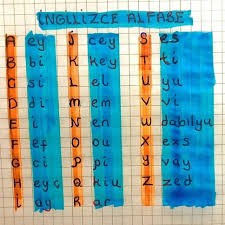 İNGİLİZCE ALFABE
A ey
B bi
C si
D di
E i
F ef
G ci
H eyç
I ay
J cey
K key
L el
M em
N en
O ou
P pi
Q kiu
R ar
S es
T ti
U yu
V vi
W dabılyu
X exs
Y vay
Z zed